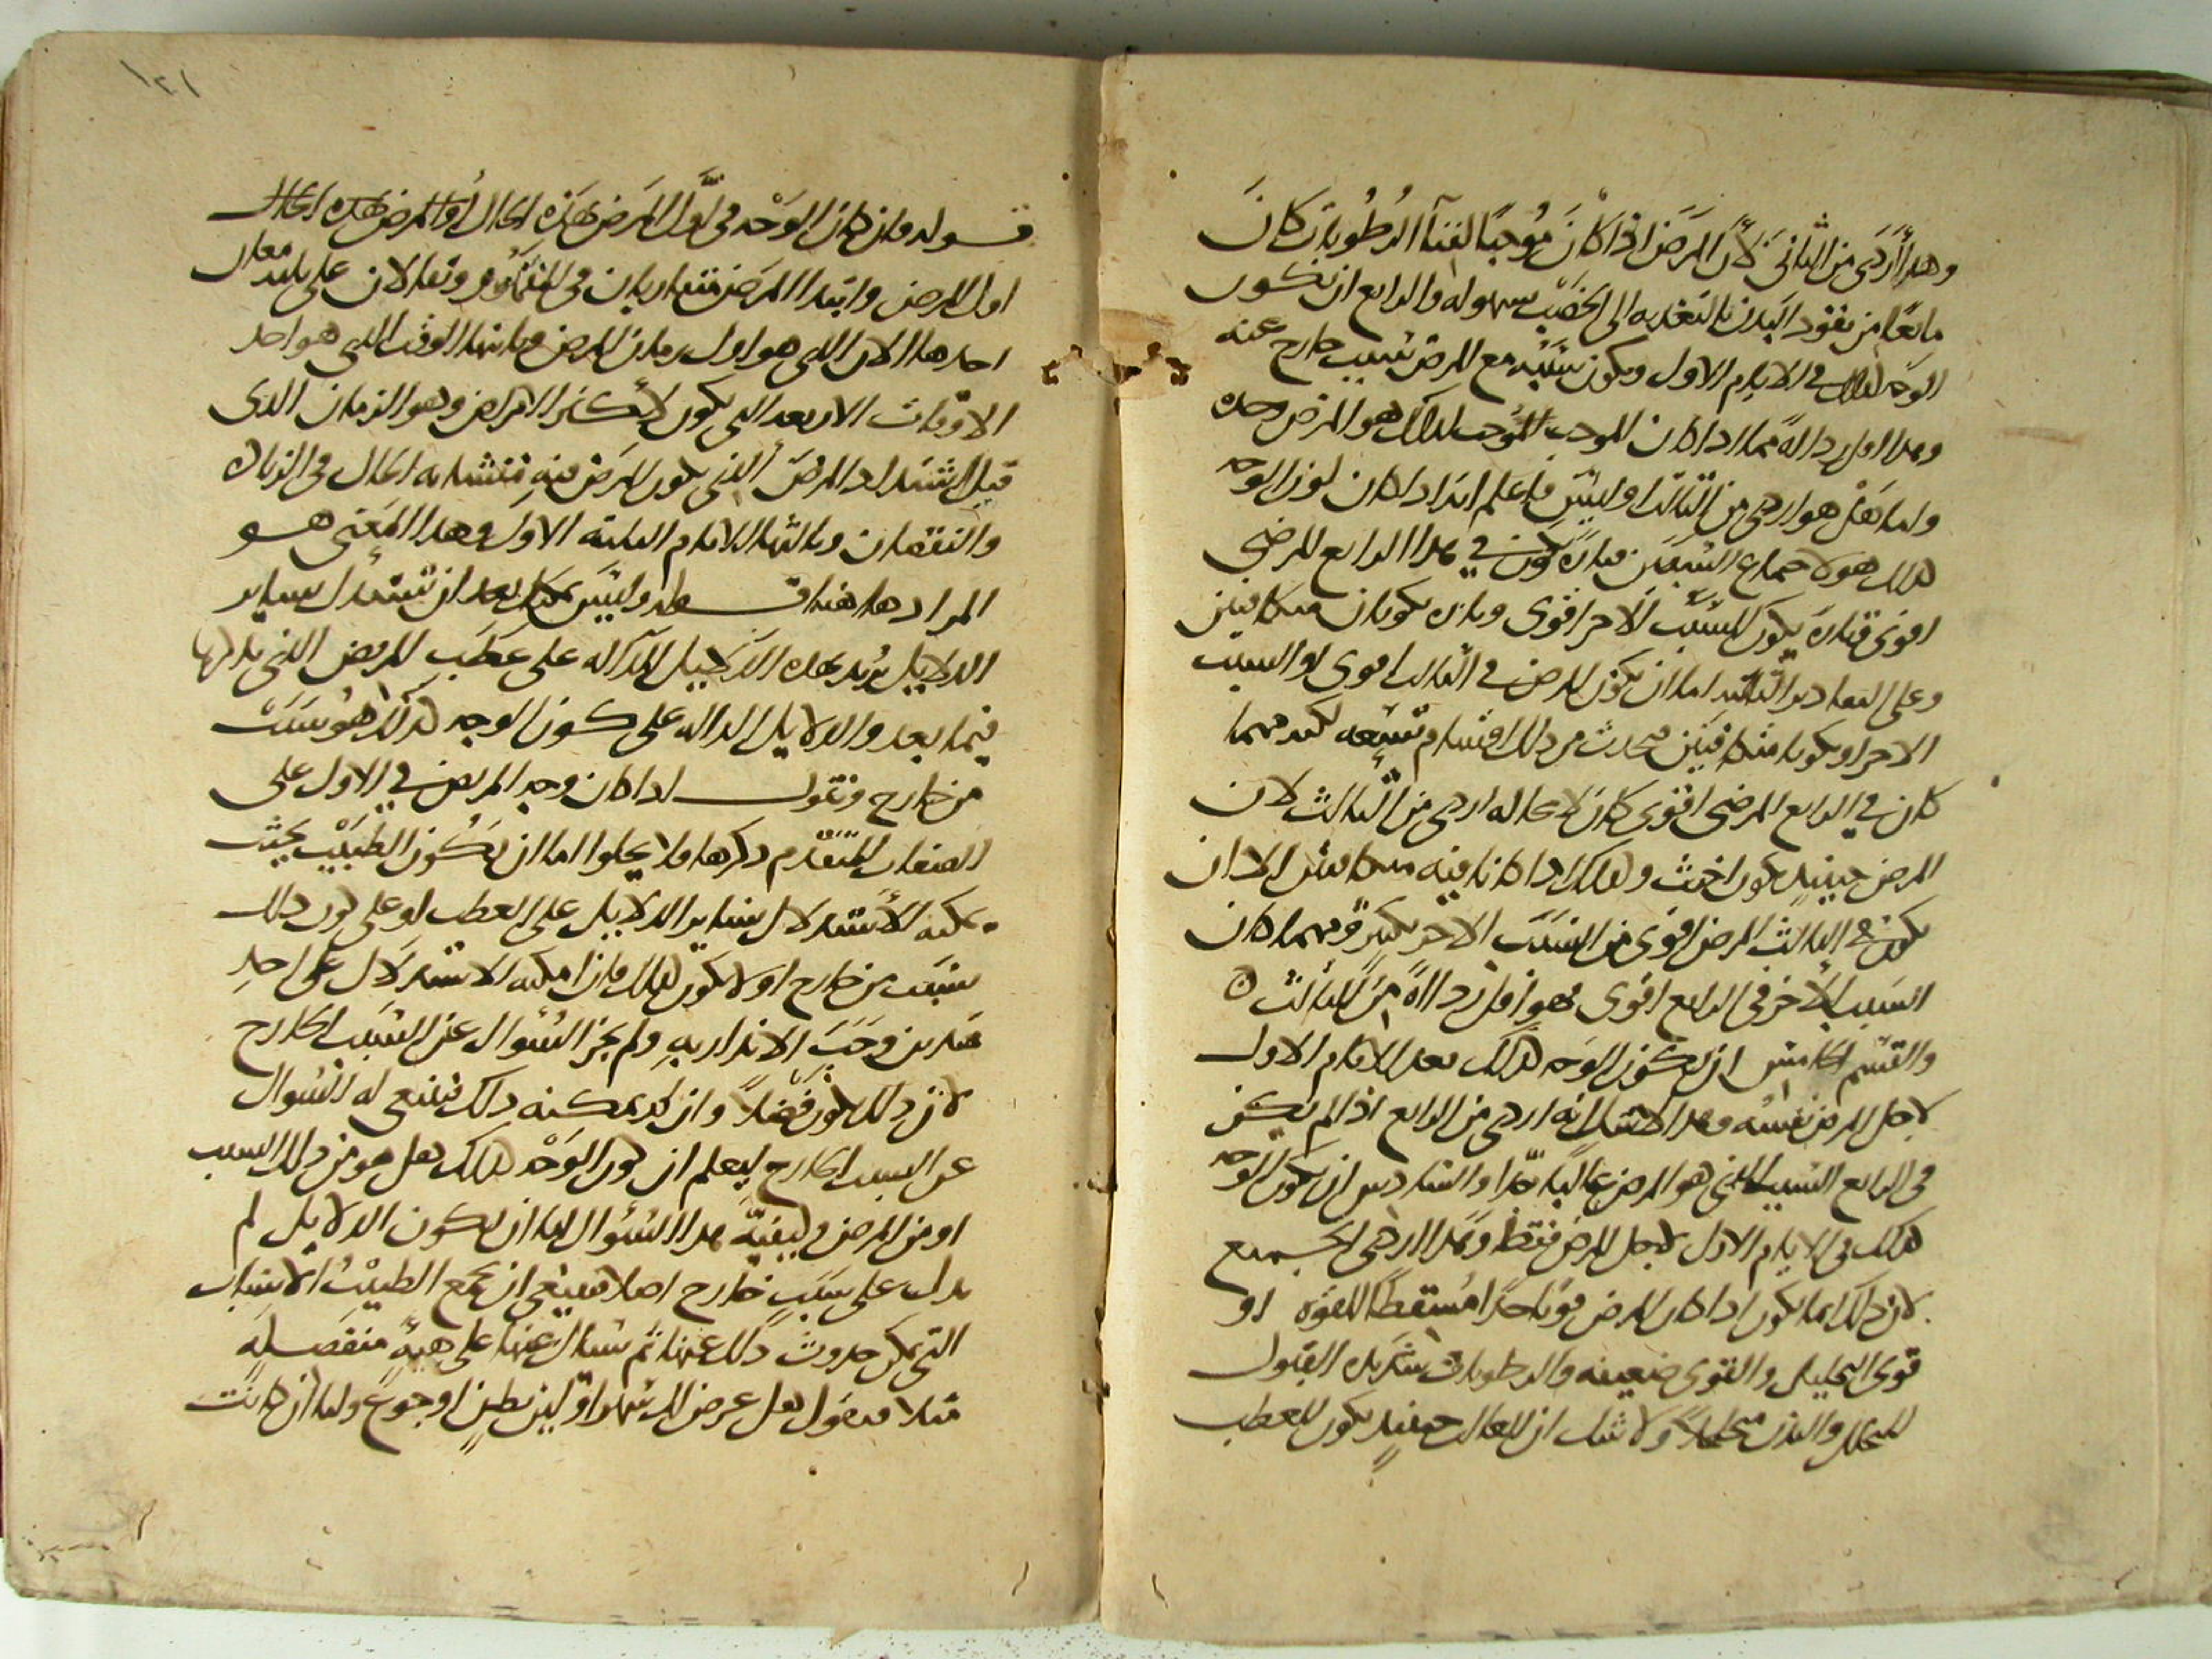 وهذا أردى من الثاني لأن المرض اذا كان موجبا لفناء الرطوبات كان
مانعا من نفوذ البدن بالتغذيه الى الخصب بسهوله والرابع ان يكون
الوجه كذلك في الايام الاول ويكون سببه مع المرض سبب خارج عنه
وهذا اقل رداله مما اذا كان الموجب لذلك هو المرض وحده
واما هل هو اردى من الثالث او ليس فاعلم انه اذا كان لون الوجه
كذلك هو لاجتماع السببين فتاره يكون في هذا الرابع المرض
اقوى وتاره يكون السبب الاخر اقوى وتاره يكونان متكافيين
وعلى التقادير الثلثه اما ان يكون المرض في الثالث اقوى او السبب
الاخر او يكونا متكافيين فيحدث من ذلك اقسام تسعه لكنه مهما
كان في الرابع المرض اقوى كان لا محاله اردى من الثالث لان
المرض حينيذ يكون اخبث وكذلك اذا كانا فيه متكافيين الا ان
يكون في الثالث المرض اقوى من السبب الاخر بكثير ومهما كان
السبب الاخر في الرابع اقوى فهو اقل رداأة من الثالث
والقسم الخامس ان يكون الوجه كذلك بعد الايام الاول
لاجل المرض نفسه وهذا انه اردى من الرابع اذا لم يكن
في الرابع السبب الذي هو المرض غالبا جدا والسادس ان يكون الوجه
كذلك في الايام الاول لاجل المرض فقط وهذا اردى الجميع
لان ذلك انما يكون اذا كان المرض قويا جدا مسقطا للقوه او
قوى التحليل والقوى ضعيفه والرطوبات شديده القبول
للتحلل والبدن متخلخلا ولا شك ان الغالب حينيذ يكون العطب
١٢١
قوله فان كان الوجه في اول المرض بهذه الحال اول المرض
اول المرض وابتدا المرض متقاربان في المفهوم ويقالان على ثلثه معان
احدها الان الذي هو اول زمان المرض وثانيها الوقت الذي هو احد
الاوقات الاربعه التي تكون لأكثر الامراض وهو الزمان الذي
قبل اشتداد المرض الذي يكون المرض فيه متشابه الحال في الزياده
والنقصان وثالثها الايام الثلثه الاول وهذا المعنى هو
المراد هاهنا قوله وليس يمكن بعد ان تستدل بساير
الدلايل يريد بهذه الدلايل الداله على عطب المريض التي يذكرها
فيما بعد والدلايل الداله على كون الوجه كذلك هو بسبب
من خارج ونقول اذا كان وجه المريض في الاول على
الصفات المتقدم ذكرها فلا يخلوا اما ان يكون الطبيب بحيث
يمكنه الأستدلال بساير الدلايل على العطب او على كون ذلك
بسبب من خارج او لا يكون كذلك فان امكنه الاستدلال على احد
هذين وجب الانذار به ولم يجز السؤال عن السبب الخارج
لان ذلك يكون فضلا وان لم يمكنه ذلك فينبغي له السوال
عن السبب الخارج ليعلم ان كون الوجه كذلك هل هو من ذلك السبب
او من المرض وكيفية هذا السؤال اما ان يكون الدلايل لم
يدل على سبب خارج اصلا فينبغي ان يجمع الطبيب الاسباب
التي يمكن حدوث ذلك عنها ثم يسال عنها على هية منفصله
مثلا فيقول هل عرض لك سهر او لين بطن او جوع واما ان كانت